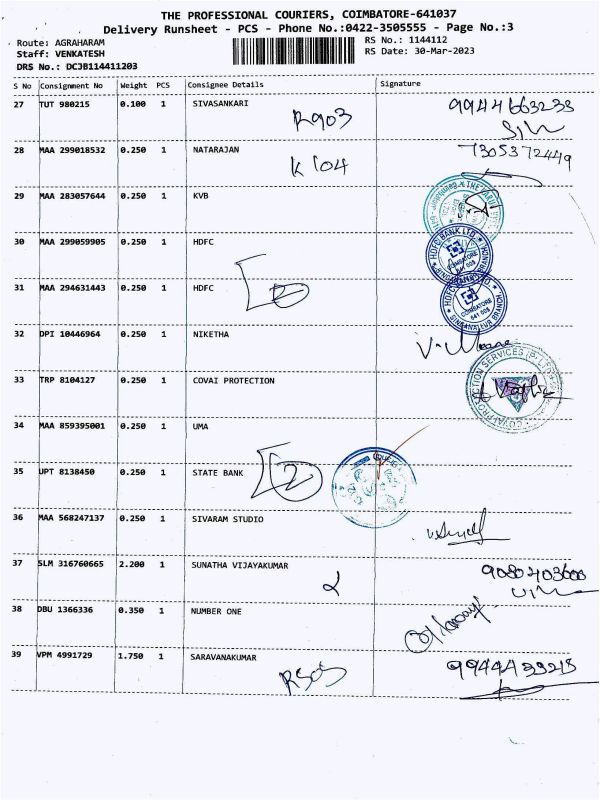 THE PROFESSIONAL COURIERS, COIMBATORE-641037
Delivery Runsheet - PCS - Phone No.:0422-3505555 - Page No.:3
Route: AGRAHARAM
RS No.: 1144112
Staff: VENKATESH
RS Date: 30-Mar-2023
DRS No.: DCJB114411203
S No Consignment No Weight PCS Consignee Details Signature
27 TUT 980215 0.100 1 SIVASANKARI
R903
28 MAA 299018532 0.250 1 NATARAJAN 7305372449
K 104
29 MAA 283057644 0.250 1 KVB
30 MAA 299059905 0.250 1 HDFC
HDFC BANK LTD
COIMBATORE
31 MAA 294631443 0.250 1 HDFC
HDFC BANK LTD
COIMBATORE
641 005
SINGANALLUR BRANCH
32 DPI 10446964 0.250 1 NIKETHA
33 TRP 8104127 0.250 1 COVAI PROTECTION
COVAI PROTECTION SERVICES (P) LTD
34 MAA 859395001 0.250 1 UMA
35 UPT 8138450 0.250 1 STATE BANK
2
36 MAA 568247137 0.250 1 SIVARAM STUDIO
37 SLM 316760665 2.200 1 SUNATHA VIJAYAKUMAR
38 DBU 1366336 0.350 1 NUMBER ONE
39 VPM 4991729 1.750 1 SARAVANAKUMAR
R505